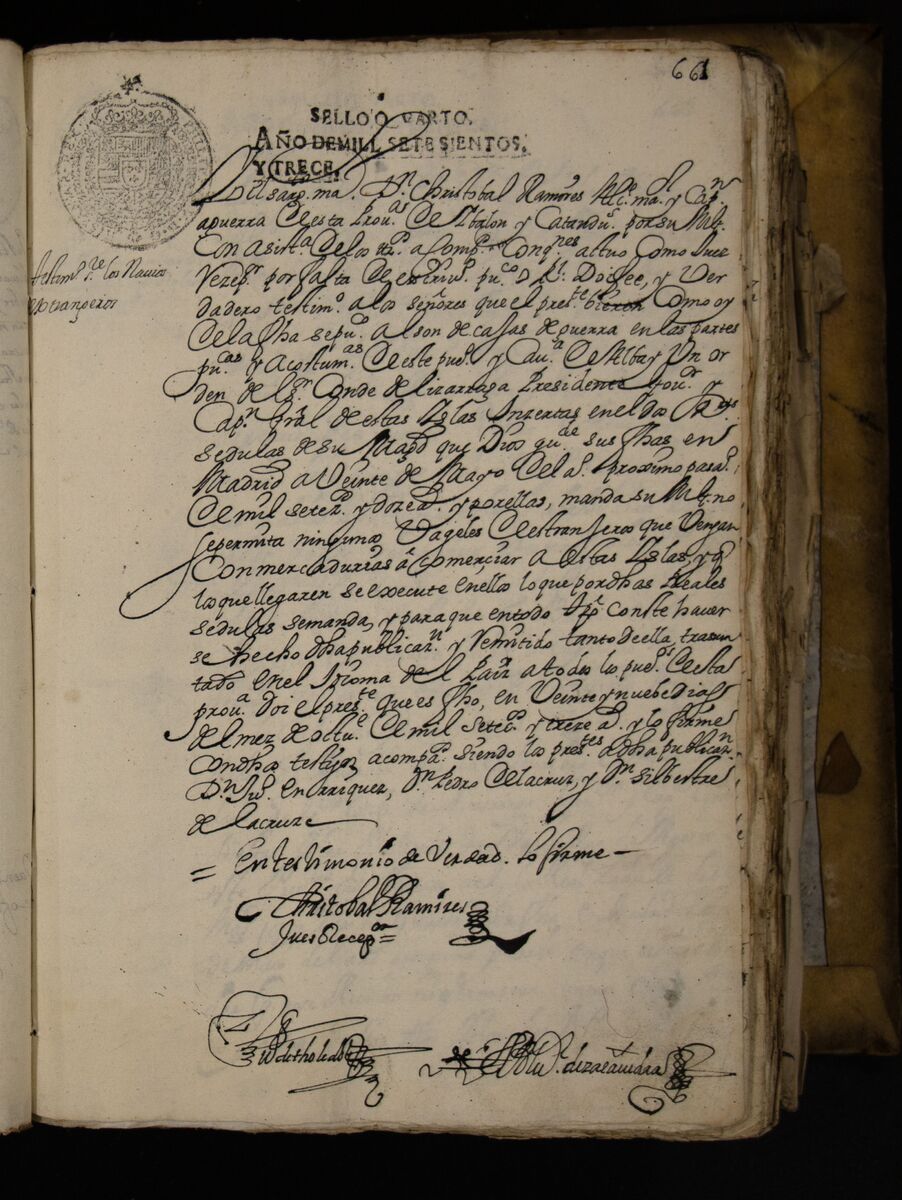 661
SELLO QVARTO,
AÑO DE MILL SETESIENTOS,
Y TRECE,
El sarg. ma. Dn Christobal Ramires Alle. maor y Capn
aguerra de esta Prou.a de Ybalon y Catandus. por su Mgd.
Con asista. de los tgos. acompdos. Con qnes actuo Como Juez
Rezepr. por falta de escriuo. puco. o Rl. Doi fee, y Ver
dadero testimo. a los señores que el preste. bieren Como oy
de la fha se puco. al son de cajas de guerra en las partes
pucas. y acostumas. de este pueo. y Caua. de Albay Un or
den del Sr. Conde de lizarraga Presidente Gour. y
Capn. Gral de estas Yslas Ynzertas en el dos Rs.
sedulas de su Magd que Dios gude. sus fhas en
Madrid a Veinte de Mayo del ao. proximo pasao.
de mil setezs. y doze as. y por ellas, manda su Mgd. no
se permita ningunos Vageles de estranjeros que Vengan
Con mercadurias a comerciar a estas Yslas, y qe
los que llegaren se execute en ellos lo que por dhas Reales
sedulas se manda, y para que en todo tpo. conste hauer
se hecho dha publicazn. y Remitido tanto de ella, trasun
tado en el Ydioma de el Paiz a todos los pueos. de esta
proua. doi el preste. que es fho, en Veinte y nuebe Dias
del mez de octue. de mil setezs. y treze as. y lo firme
Con dhos testigos acompas. siendo los prestes. a dha publicazn.
Dn. Juo. Enrriquez, Dn. Pedro de la cruz, y Dn. Silbestre
de la cruz
= En testimonio de Verdad. lo firme —
Christobal Ramires
Jues Recepor =
testimo. de los Nauios
extrangeros
Juo de tholedo
de zaaauedra